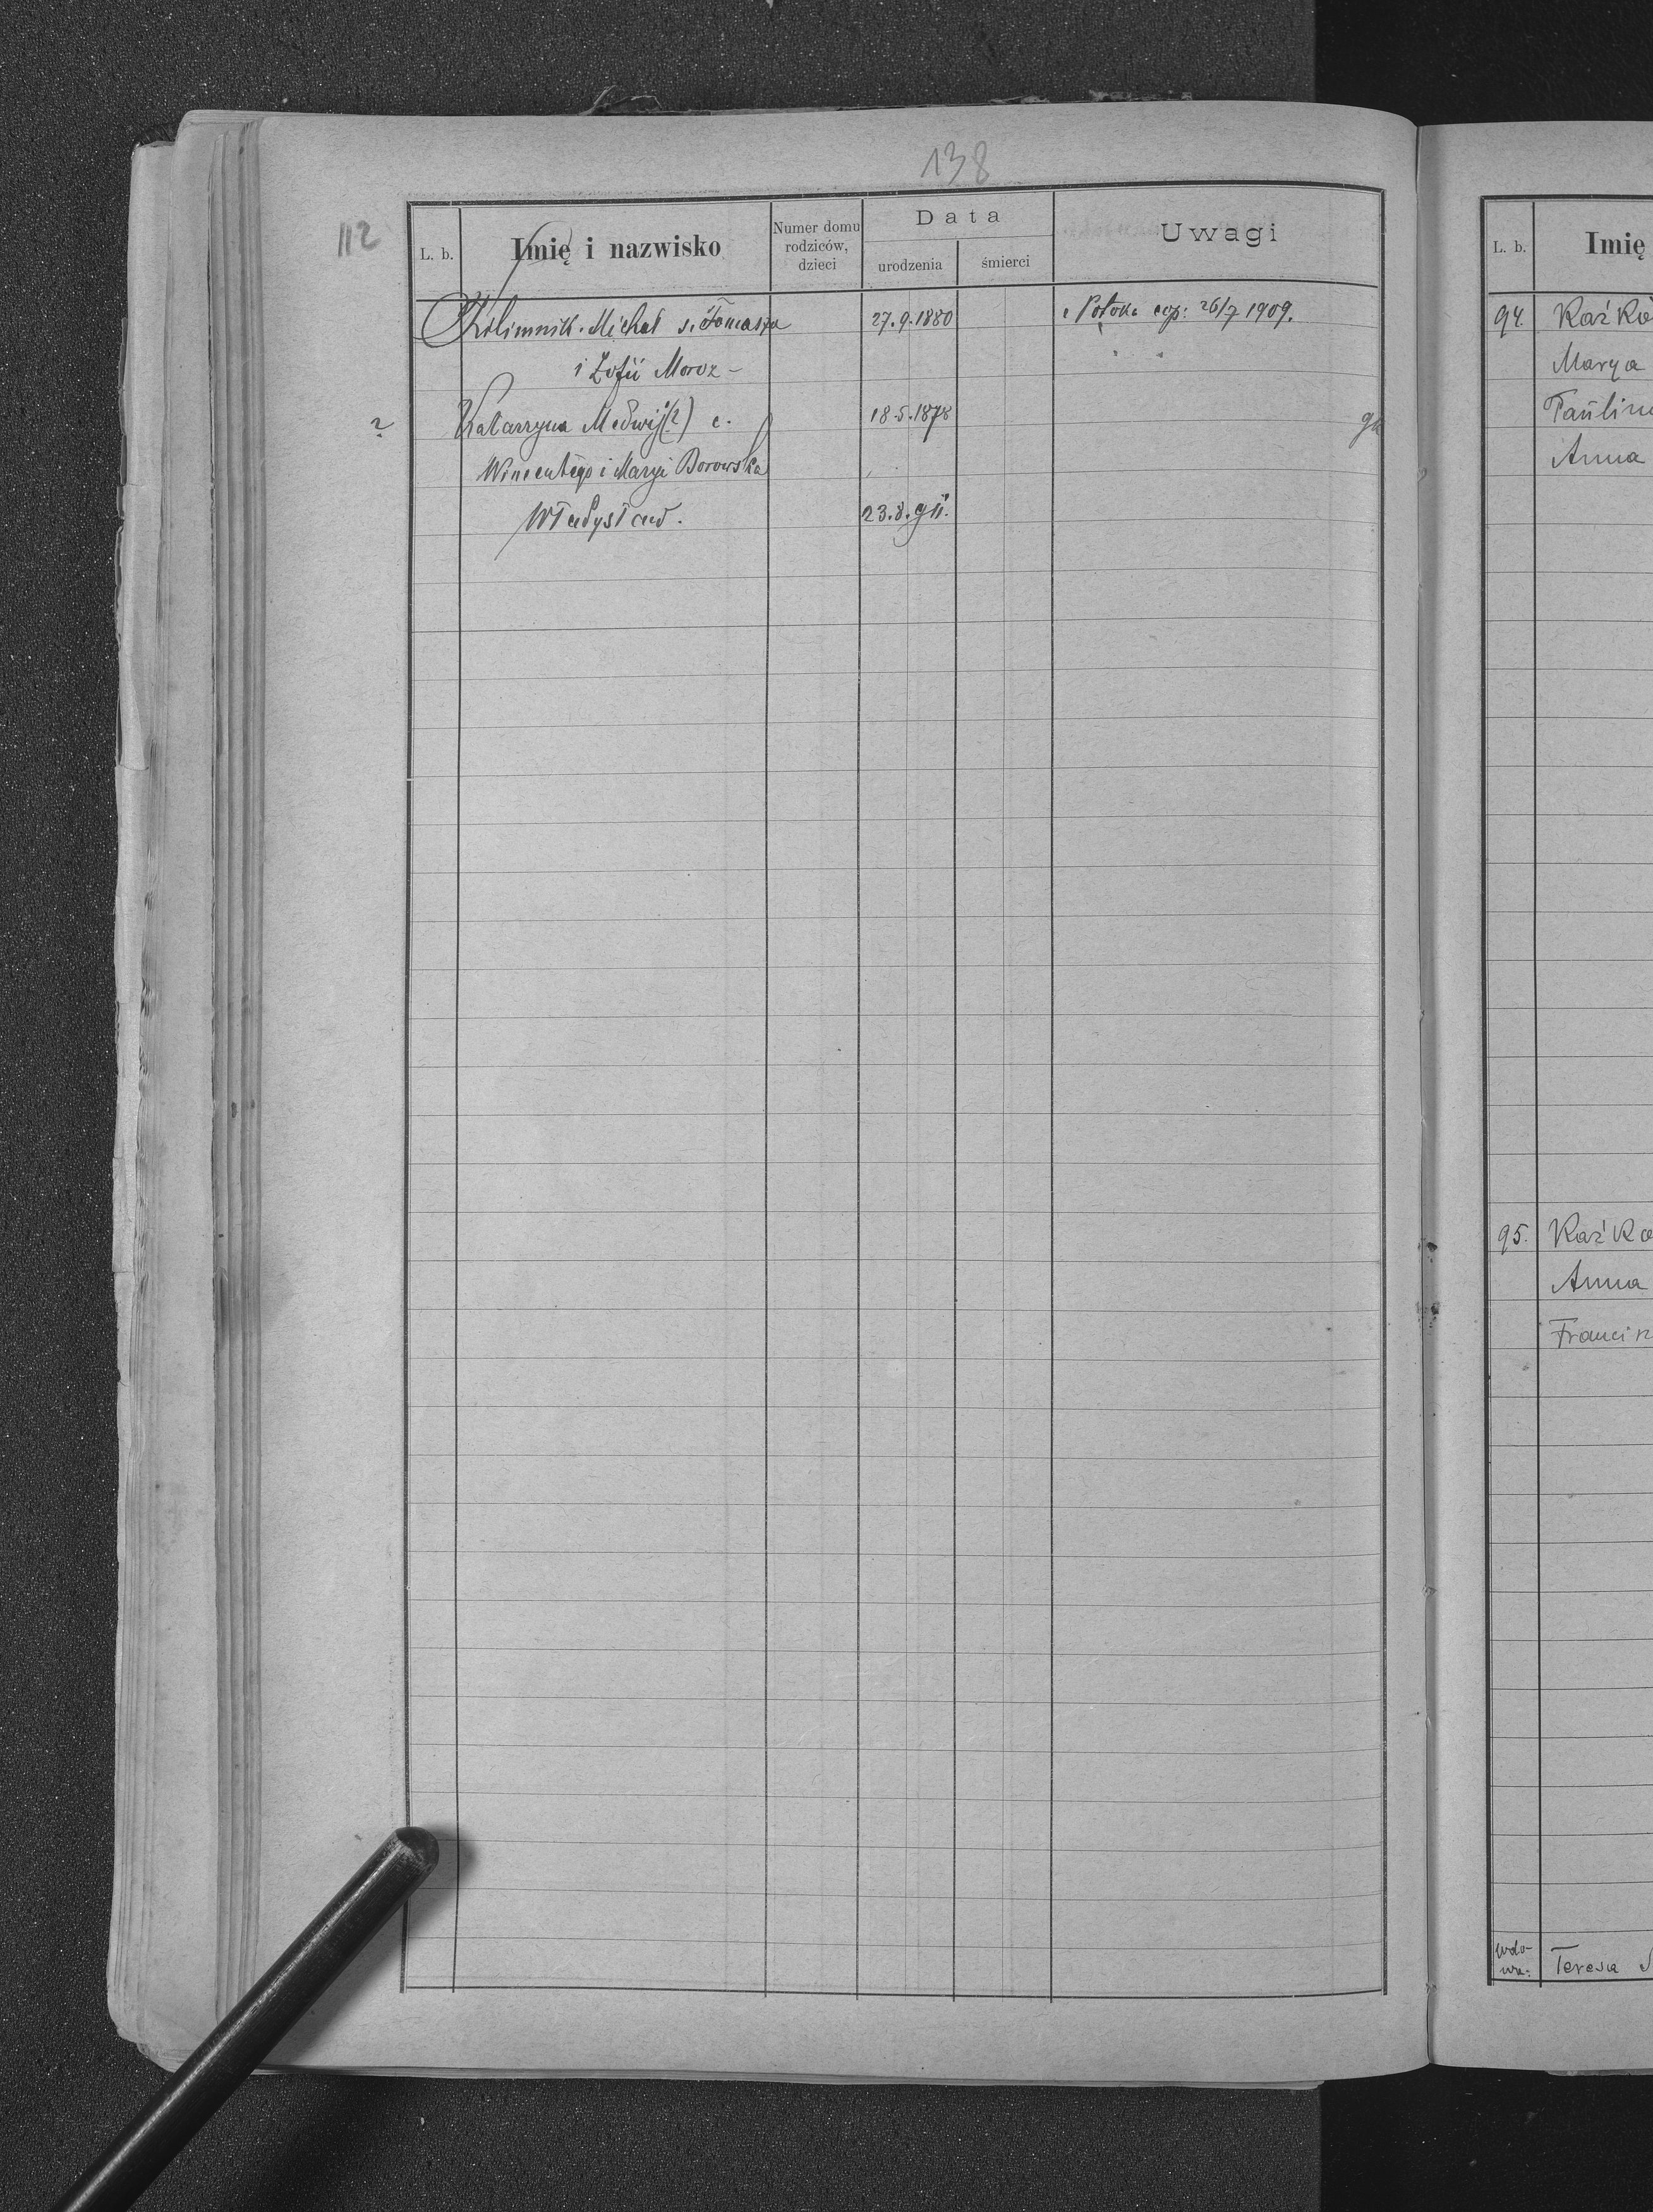 138
112
L. b. Imię i nazwisko Numer domu rodziców, dzieci Data urodzenia śmierci Uwagi
Kilimnik Michał s. Tomasza 27.9.1880 z Potoka cop: 26/7 1909.
i Zofii Moroz -
? Katarzyna Medwij(?) c. 18.5.1878
Wincentego i Maryi Borowska
Władysław. 23.8.911.
L. b. Imię
94. Kaźko
Marya
Paulin
Anna
95. Kaźko
Anna
Francisz
wdo-
wa: Teresa